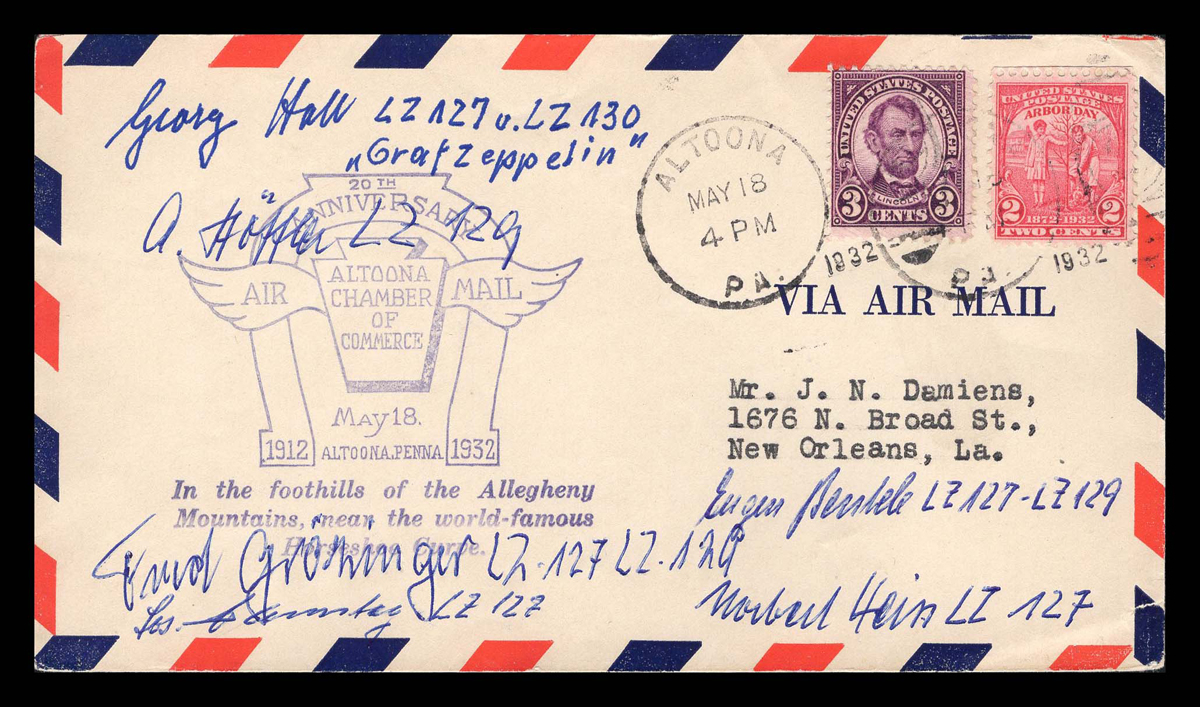 Georg Hall LZ 127 u. LZ 130
„Graf Zeppelin"
A. LZ 129
20TH
ANNIVERSARY
AIR MAIL
ALTOONA
CHAMBER
OF
COMMERCE
MAY 18.
1912 ALTOONA, PENNA 1932
In the foothills of the Allegheny
Mountains, near the world-famous
Horseshoe Curve.
ALTOONA
MAY 18
4 PM
PA.
1932
UNITED STATES POSTAGE
LINCOLN
3 CENTS 3
UNITED STATES
POSTAGE
ARBOR DAY
2 1872-1932 2
TWO CENTS
PA.
1932
VIA AIR MAIL
Mr. J. N. Damiens,
1676 N. Broad St.,
New Orleans, La.
Eugen Bentele LZ 127-LZ 129
Grözinger LZ. 127 LZ. 129
Jos. LZ 127
Norbert Heiss LZ 127